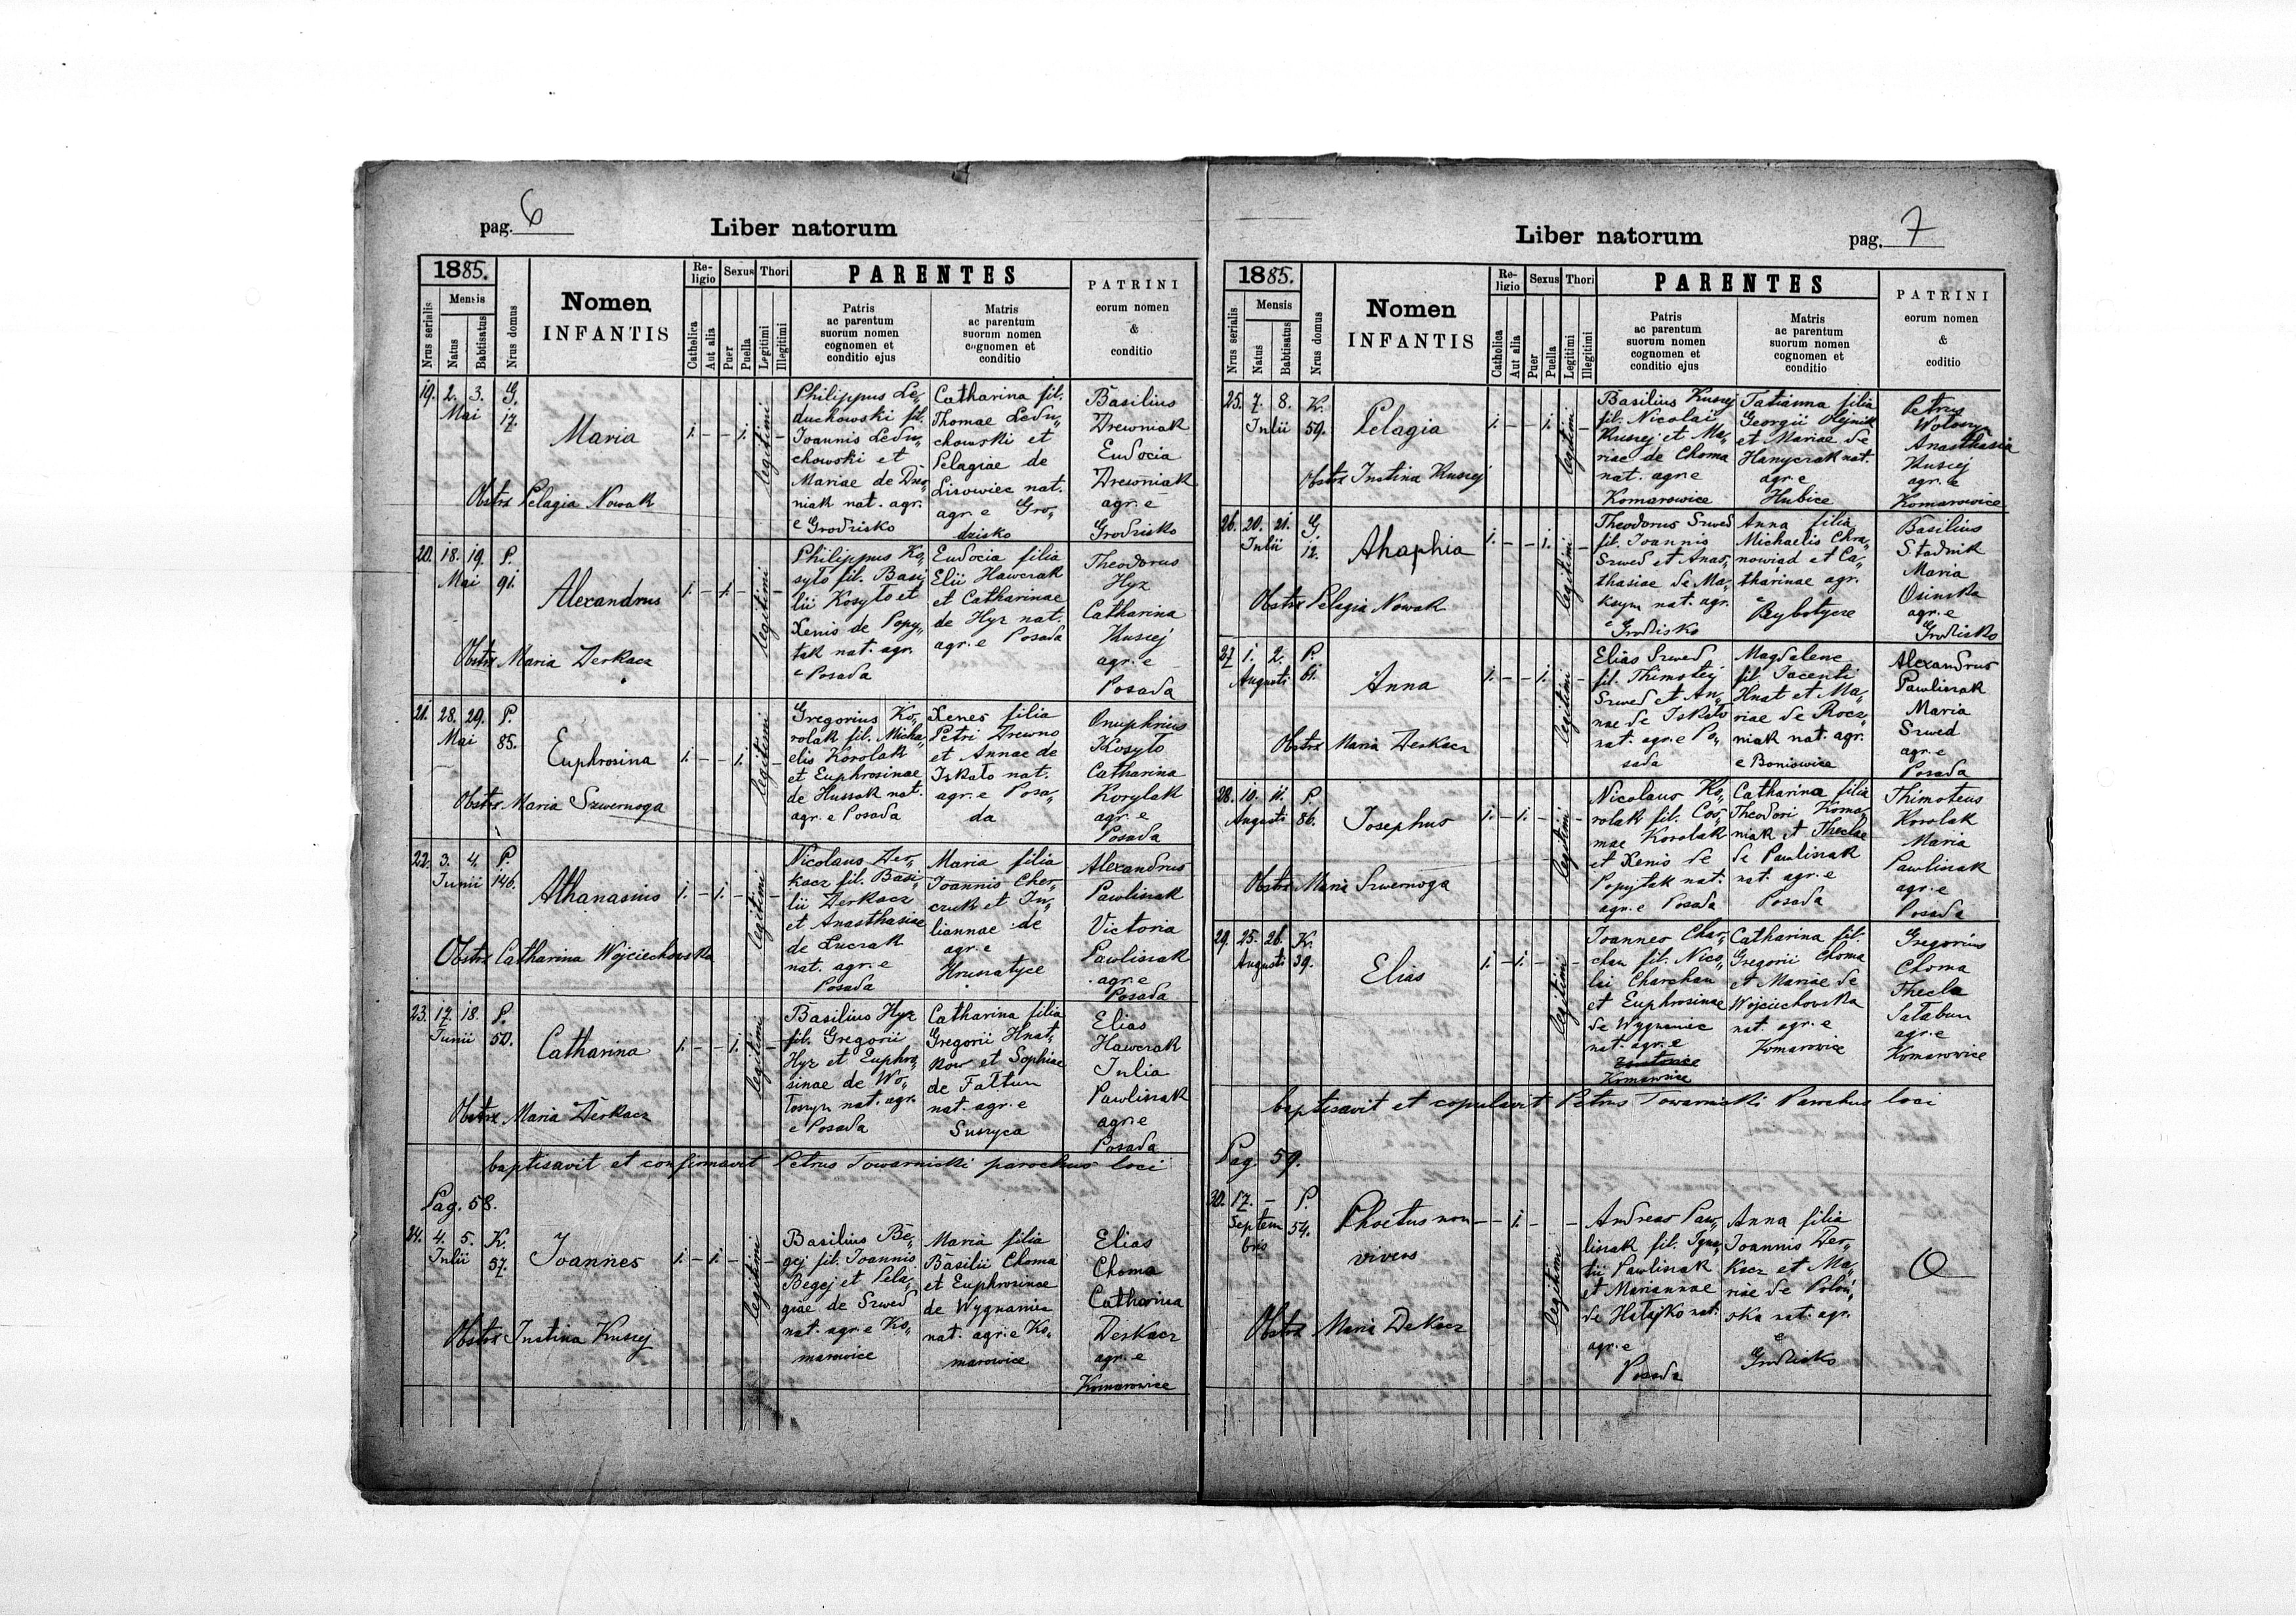 pag. 6
Liber natorum
1885.
Nrus serialis
Mensis
Natus
Babtisatus
Nrus domus
Nomen
INFANTIS
Re-
ligio
Catholica
Aut alia
Sexus
Puer
Puella
Thori
Legitimi
Illegitimi
PARENTES
Patris
ac parentum
suorum nomen
cognomen et
conditio ejus
Matris
ac parentum
suorum nomen
cognomen et
conditio
PATRINI
eorum nomen
&
conditio
19. 2. 3. G.
Mai 17.
Maria
1. - - 1. legitimi -
Obstrx Pelagia Nowak
Philippus Le„
duchowski fil.
Joannis Ledu„
chowski et
Mariae de Drew„
niak nat. agr.
e Grodzisko
Catharina fil.
Thomae Ledu„
chowski et
Pelagiae de
Lisowiec nat.
agr. e Gro„
dzisko
Basilius
Drewniak
Eudocia
Drewniak
agr. e
Grodzisko
20. 18. 19. P.
Mai 91.
Alexandrus
1. - 1. - legitimi -
Obstrx Maria Derkacz
Philippus Ko„
syło fil. Basi„
lii Kosyło et
Xenis de Popy„
tak nat. agr.
e Posada
Eudocia filia
Elii Hawczak
et Catharinae
de Hyz nat.
agr. e Posada
Theodorus
Hyz
Catharina
Kuszej
agr. e
Posada
21. 28. 29. P.
Mai 85.
Euphrosina
1. - - 1. legitimi -
Obstrx Maria Szwernoga
Gregorius Ko„
rolak fil. Micha„
elis Korolak
et Euphrosinae
de Hussak nat.
agr. e Posada
Xenes filia
Petri Drewno
et Annae de
Iskało nat.
agr. e Posa„
da
Onuphrius
Kosyło
Catharina
Korylak
agr. e
Posada
22. 3. 4. P.
Junii 146.
Athanasius
1. - 1. - legitimi -
Obstrx Catharina Wojciechowska
Nicolaus Der„
kacz fil. Basi„
lii Derkacz
et Anasthasiae
de Luczak
nat. agr. e
Posada
Maria filia
Joannis Cher„
czuk et Ju„
liannae de
agr. e
Hrussatyce
Alexandrus
Pawliszak
Victoria
Pawliszak
agr. e
Posada
23. 17. 18. P.
Junii 50.
Catharina
1. - - 1. legitimi -
Obstrx Maria Derkacz
Basilius Hyz
fil. Gregorii
Hyz et Euphro„
sinae de Wo„
łoszyn nat. agr.
e Posada
Catharina filia
Gregorii Hnat„
kow et Sophiae
de Fałtun
nat. agr. e
Suszyca
Elias
Hawczak
Julia
Pawliszak
agr. e
Posada
baptisavit et confirmavit Petrus Towarnicki parochus loci
Pag. 58.
24. 4. 5. K.
Julii 57.
Joannes
1. - 1. - legitimi -
Obstrx Justina Kuszej
Basilius Be„
gej fil. Joannis
Begej et Pela„
giae de Szwed
nat. agr. e Ko„
marowice
Maria filia
Basilii Choma
et Euphrosinae
de Wygnaniec
nat. agr. e Ko„
marowice
Elias
Choma
Catharina
Derkacz
agr. e
Komarowice
Liber natorum
pag. 7
1885.
Nrus serialis
Mensis
Natus
Babtisatus
Nrus domus
Nomen
INFANTIS
Re-
ligio
Catholica
Aut alia
Sexus
Puer
Puella
Thori
Legitimi
Illegitimi
PARENTES
Patris
ac parentum
suorum nomen
cognomen et
conditio ejus
Matris
ac parentum
suorum nomen
cognomen et
conditio
PATRINI
eorum nomen
&
coditio
25. 7. 8. K.
Julii 59.
Pelagia
1. - - 1. legitimi -
Obstrx Justina Kuszej
Basilius Kuszej
fil. Nicolai
Kuszej et Ma„
riae de Choma
nat. agr. e
Komarowice
Tatianna filia
Georgii Olejnik
et Mariae de
Hanyczak nat.
agr. e
Hubice
Petrus
Wołoszyn
Anasthasia
Kuszej
agr. e
Komarowice
26. 20. 21. G.
Julii 12.
Ahaphia
1. - - 1. legitimi -
Obstrx Pelagia Nowak
Theodorus Szwed
fil. Joannis
Szwed et Anas„
thasiae de Ma„
ksym nat. agr.
e Grodzisko
Anna filia
Michaelis Chra„
nowiad et Ca„
tharinae agr.
e
Rybotycze
Basilius
Stadnik
Maria
Osinska
agr. e
Grodzisko
27. 1. 2. P.
Augusti 61.
Anna
1. - - 1. legitimi -
Obstrx Maria Derkacz
Elias Szwed
fil. Thimotei
Szwed et An„
nae de Iskało
nat. agr. e Po„
sada
Magdalene
fil. Jacenti
Hnat et Ma„
riae de Rocz„
niak nat. agr.
e Boniowice
Alexandrus
Pawliszak
Maria
Szwed
agr. e
Posada
28. 10. 11. P.
Augusti 86.
Josephus
1. - 1. - legitimi -
Obstrx Maria Szwernoga
Nicolaus Ko„
rolak fil. Cos„
mae Korolak
et Xenis de
Popytak nat.
agr. e Posada
Catharina filia
Theodori Koma„
niak et Theclae
de Pawliszak
nat. agr. e
Posada
Thimoteus
Korolak
Maria
Pawliszak
agr. e
Posada
29. 25. 26. K.
Augusti 39.
Elias
1. - 1. - legitimi -
Joannes Char„
chan fil. Nico„
lai Charchan
et Euphrosinae
de Wygnaniec
nat. agr. e
Komarowice
Catharina fil.
Gregorii Choma
et Mariae de
Wojciechowska
nat. agr. e
Komarowice
Gregorius
Choma
Thecla
Tatabun
agr. e
Komarowice
baptisavit et copulavit Petrus Towarnicki Parochus loci
Pag. 59.
30. 17. - P.
Septem 54.
bris
Phoetus non
vivus
- - 1. - legitimi -
Obstrx Maria Dekacz
Andreas Paw„
liszak fil. Igna„
tii Pawliszak
et Mariannae
de Hatajko nat.
agr. e
Posada
Anna filia
Joannis Der„
kacz et Ma„
riae de Polon„
ska nat. agr.
e
Grodzisko